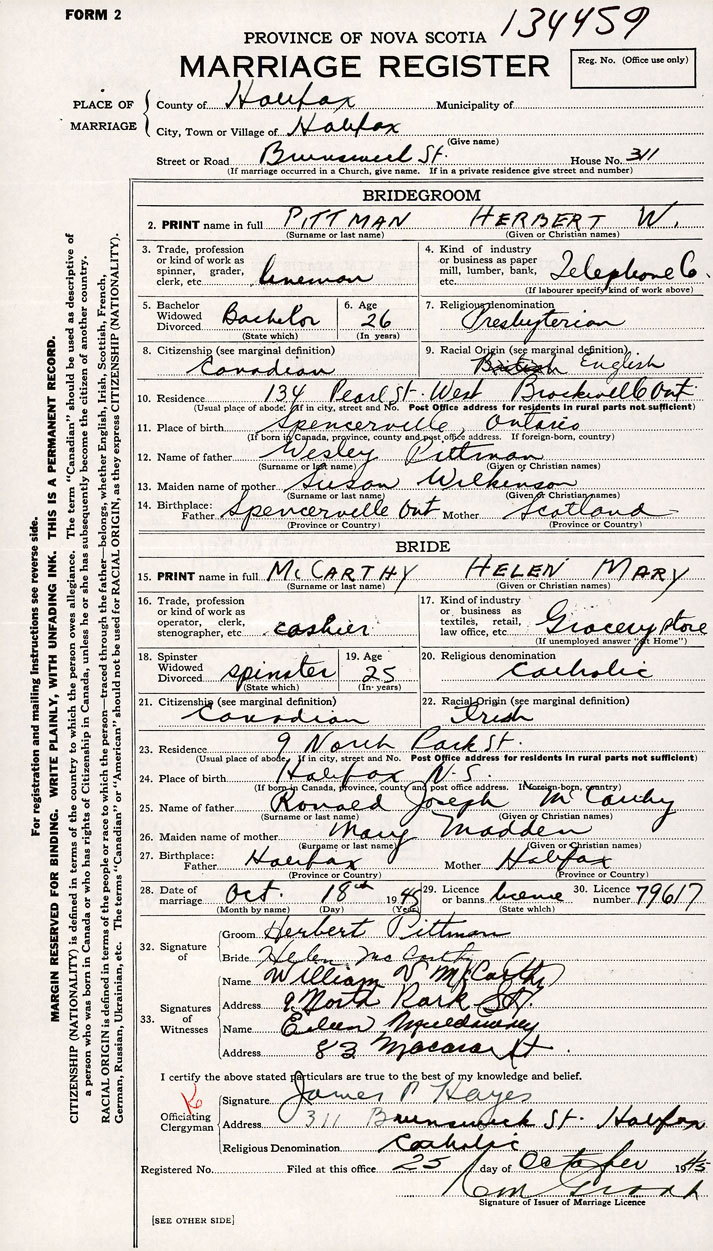 FORM 2
134459
PROVINCE OF NOVA SCOTIA
MARRIAGE REGISTER
Reg. No. (Office use only)
PLACE OF MARRIAGE
County of Halifax Municipality of
City, Town or Village of Halifax
(Give name)
Street or Road Brunswick St. House No. 311
(If marriage occurred in a Church, give name. If in a private residence give street and number)
BRIDEGROOM
2. PRINT name in full PITTMAN HERBERT W.
(Surname or last name) (Given or Christian names)
3. Trade, profession or kind of work as spinner, grader, clerk, etc. lineman
4. Kind of industry or business as paper mill, lumber, bank, etc. Telephone Co.
(If labourer specify kind of work above)
5. Bachelor Widowed Divorced Bachelor (State which)
6. Age 26 (In years)
7. Religious denomination Presbyterian
8. Citizenship (see marginal definition) Canadian
9. Racial Origin (see marginal definition) British English
10. Residence 134 Pearl St. West Brockville Ont
(Usual place of abode. If in city, street and No. Post Office address for residents in rural parts not sufficient)
11. Place of birth Spencerville, Ontario
(If born in Canada, province, county and post office address. If foreign-born, country)
12. Name of father Wesley Pittman
(Surname or last name) (Given or Christian names)
13. Maiden name of mother Susan Wilkinson
(Surname or last name) (Given or Christian names)
14. Birthplace: Father Spencerville Ont Mother Scotland
(Province or Country) (Province or Country)
BRIDE
15. PRINT name in full McCARTHY HELEN MARY
(Surname or last name) (Given or Christian names)
16. Trade, profession or kind of work as operator, clerk, stenographer, etc cashier
17. Kind of industry or business as textiles, retail, law office, etc. Grocery store
(If unemployed answer "at Home")
18. Spinster Widowed Divorced spinster (State which)
19. Age 25 (In years)
20. Religious denomination Catholic
21. Citizenship (see marginal definition) Canadian
22. Racial Origin (see marginal definition) Irish
23. Residence 9 North Park St.
(Usual place of abode. If in city, street and No. Post Office address for residents in rural parts not sufficient)
24. Place of birth Halifax N.S.
(If born in Canada, province, county and post office address. If foreign-born, country)
25. Name of father Ronald Joseph McCarthy
(Surname or last name) (Given or Christian names)
26. Maiden name of mother Mary Madden
(Surname or last name) (Given or Christian names)
27. Birthplace: Father Halifax Mother Halifax
(Province or Country) (Province or Country)
28. Date of marriage Oct. 18th 1945
(Month by name) (Day) (Year)
29. Licence or banns license (State which)
30. Licence number 79617
32. Signature of
Groom Herbert Pittman
Bride Helen McCarthy
33. Signatures of Witnesses
Name William V McCarthy
Address 9 North Park St.
Name Eileen
Address 83 St.
I certify the above stated particulars are true to the best of my knowledge and belief.
Officiating Clergyman
Signature James P Hayes
Address 311 Brunswick St. Halifax
Religious Denomination Catholic
Registered No. Filed at this office 25 day of October 1945
Signature of Issuer of Marriage Licence
[SEE OTHER SIDE]
For registration and mailing instructions see reverse side.
MARGIN RESERVED FOR BINDING. WRITE PLAINLY, WITH UNFADING INK. THIS IS A PERMANENT RECORD.
CITIZENSHIP (NATIONALITY) is defined in terms of the country to which the person owes allegiance. The term "Canadian" should be used as descriptive of
a person who was born in Canada or who has rights of Citizenship in Canada, unless he or she has subsequently become the citizen of another country.
RACIAL ORIGIN is defined in terms of the people or race to which the person—traced through the father—belongs, whether English, Irish, Scottish, French,
German, Russian, Ukrainian, etc. The terms "Canadian" or "American" should not be used for RACIAL ORIGIN, as they express CITIZENSHIP (NATIONALITY).